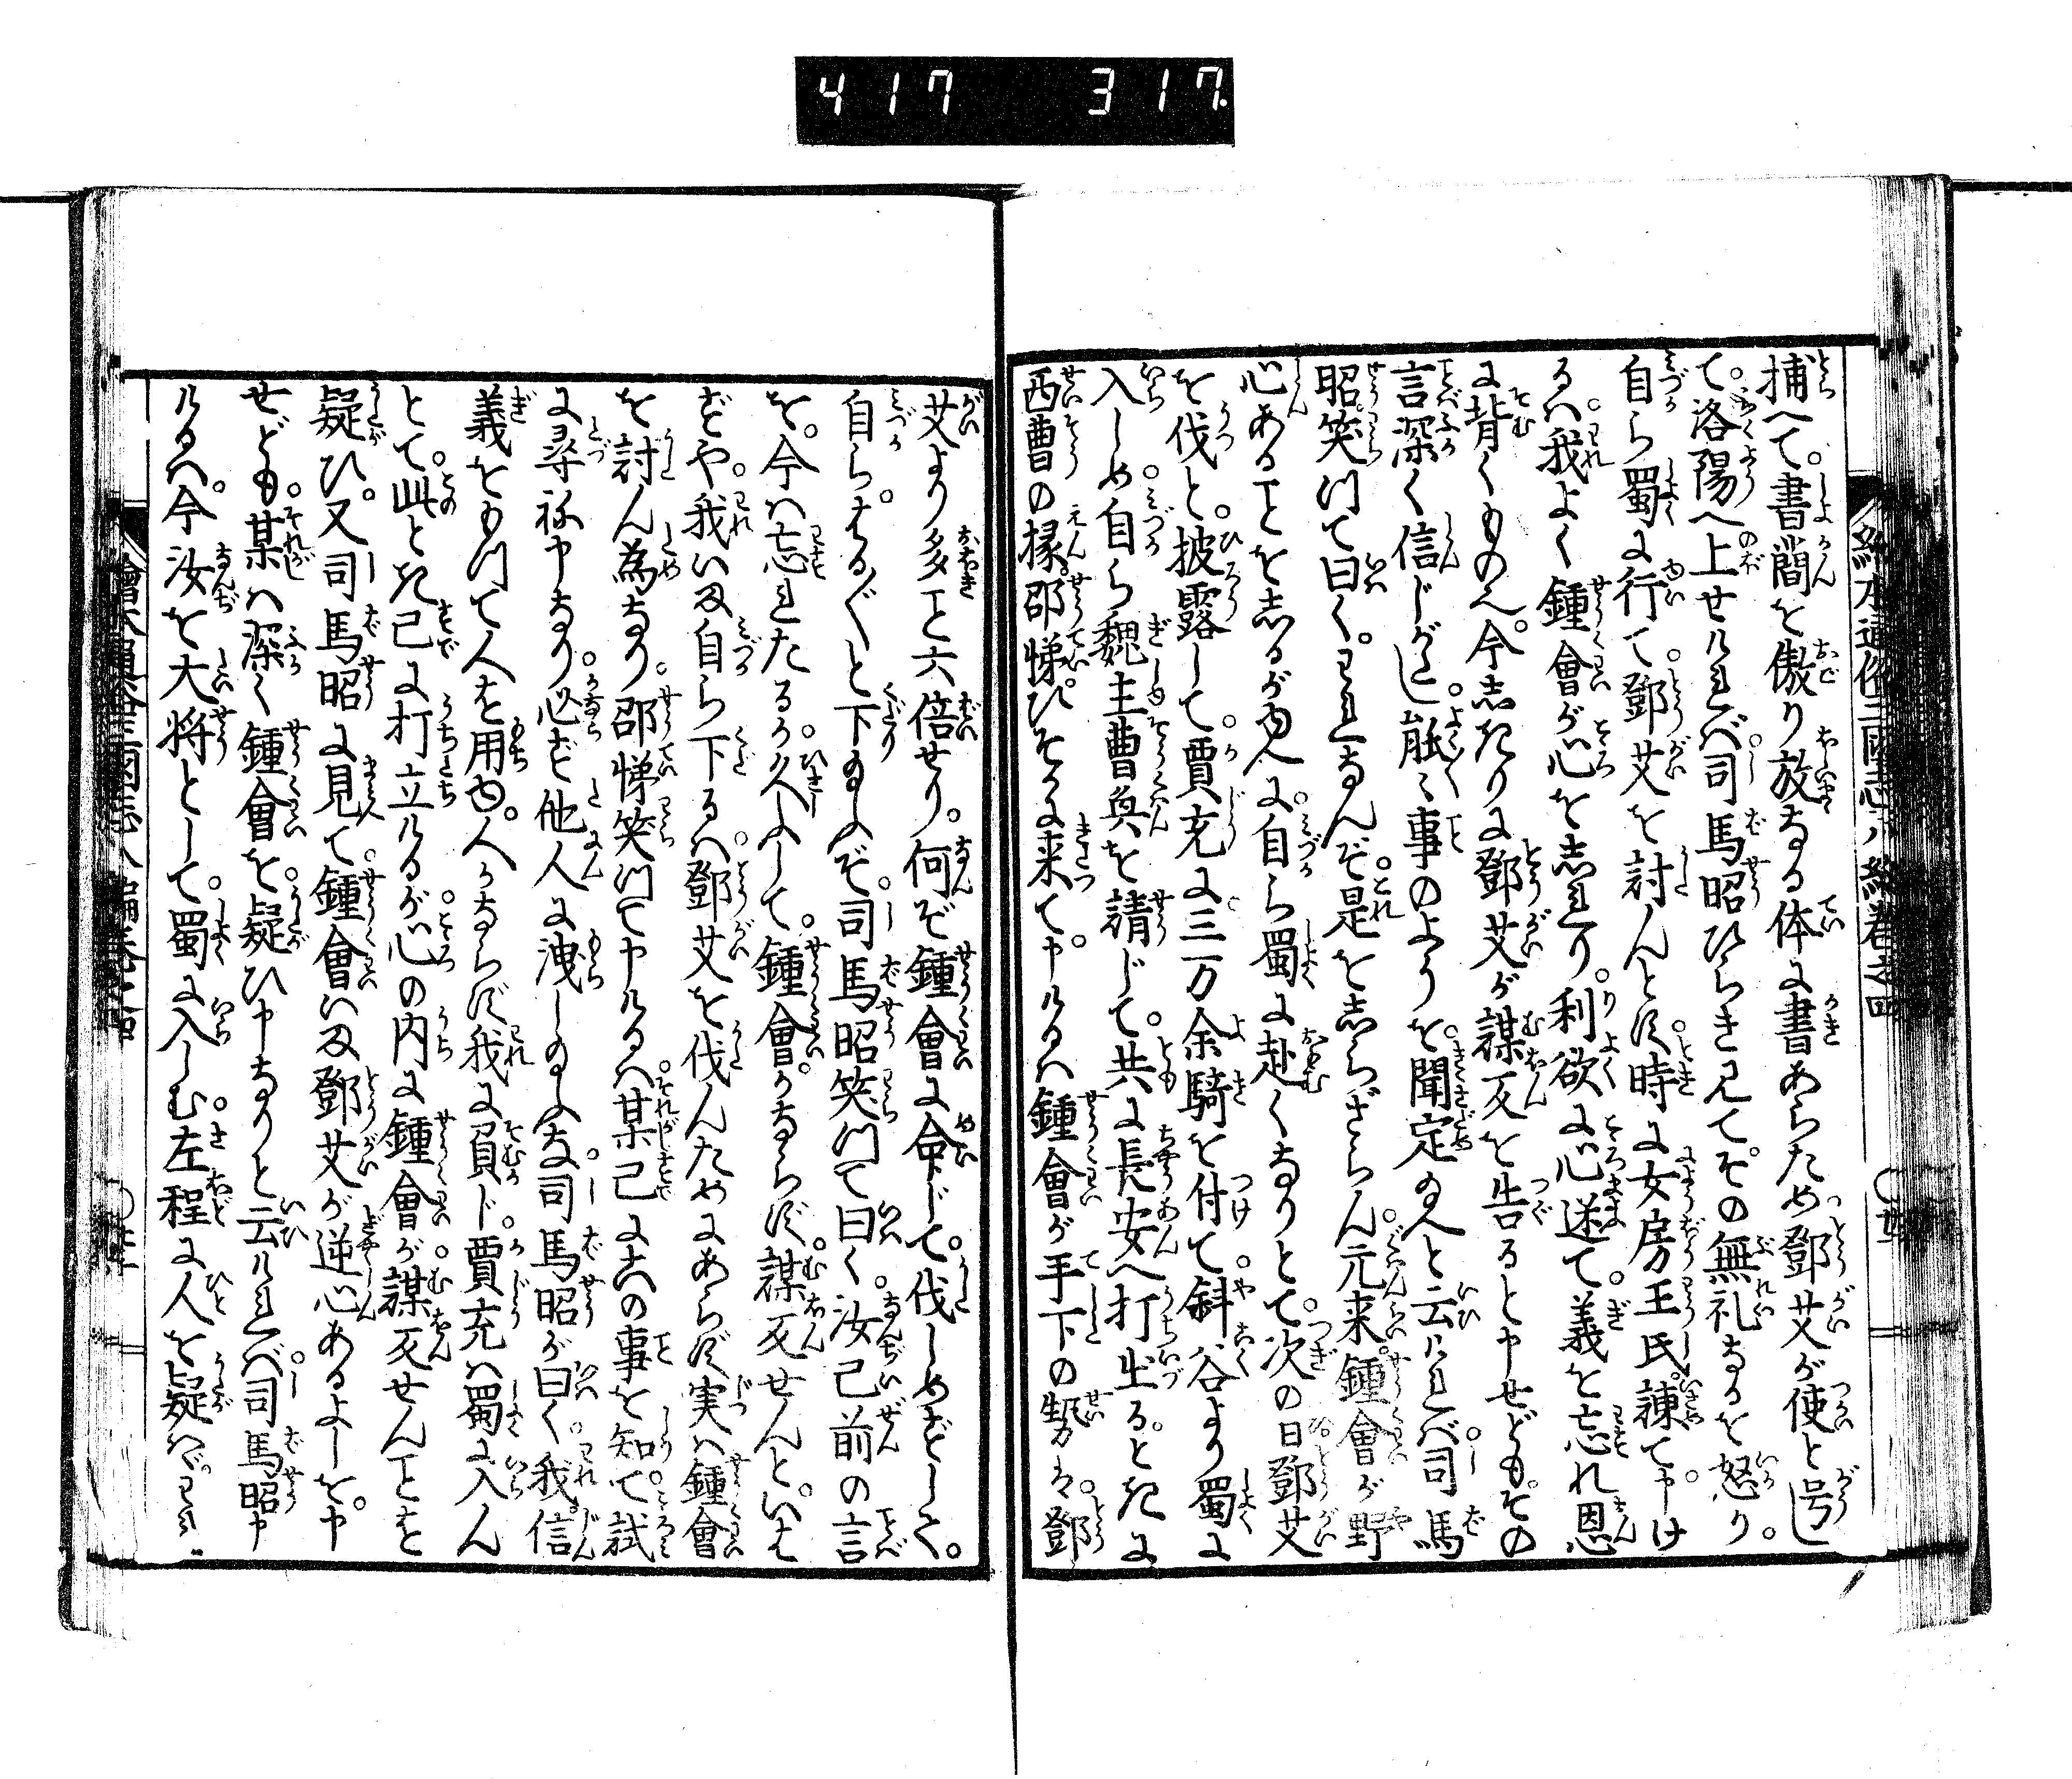 417 317
捕へて。書簡を傲り放なる体に書あらため鄧艾が使と号し
て。洛陽へ上せければ司馬昭ひらき見て。その無礼なるを怒り。
自ら蜀に行て鄧艾を討んとす。時に女房王氏。諫て。申け
るハ。我よく鍾會が心を志れり。利欲に心迷て。義を忘れ恩
に背くものへ。今志きりに鄧艾が謀反を告ると申せども。その
言深く信じがたし。能〻事のよりを。聞定め給へと云ければ司馬
昭笑つて曰く。われなんぞ是を志らざらん。元来。鍾會が野
心あることを志るが由へに。自ら蜀に赴くなりとて。次の日鄧艾
を伐と。披露して。賈充に三万余騎を付て。斜谷より蜀に
入しめ。自ら魏主曹奐を請じて。共に長安へ打出る。ときに
西曹の掾。邵悌。ひそかに来て。申けるハ鍾會が手下の勢ハ。鄧
艾より多こと六倍せり。何ぞ鍾會に命じて。伐しめずして。
自ら。はる〴〵と下給ふぞ。司馬昭笑つて曰く。汝已前の言
を。今ハ忘れたるか。久ふして。鍾會。かならず。謀反せんと。いは
ずや。我いま自ら下るハ。鄧艾を伐んためにあらず。実ハ鍾會
を討ん為なり。邵悌笑つて申けるハ。某已にこの事を知て。試
に尋祢申なり。必ず他人に洩し給ふな。司馬昭が曰く。我。信
義をもつて人を用ゆ。人かならず我に負ド。賈充ハ蜀に入ん
とて。此とき已に打立けるが。心の内に鍾會が。謀反せんことを
疑ひ。又司馬昭に見て。鍾會いま鄧艾が逆心あるよしを。申
せども。某ハ深く鍾會を。疑ひ申なりと云ければ。司馬昭申
けるハ。今汝を大将として。蜀に入しむ。左程に人を疑へバ。われ